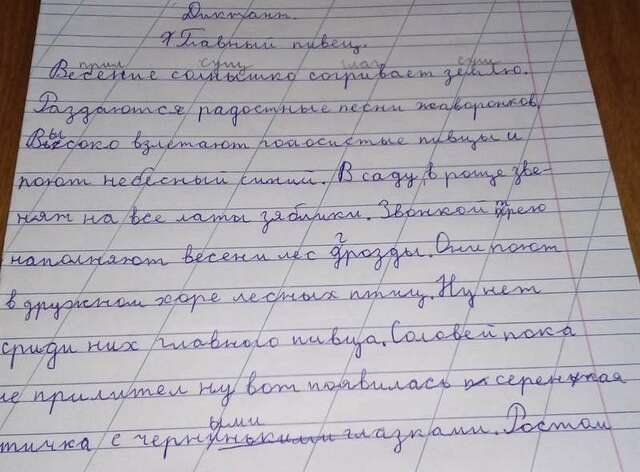 Диктант.
Главный пивец.
прил сущ глаг сущ
Весение солнышко согривает землю.
Раздаются радостные песни жаворонков
Высоко взлетают голосистые пивцы и
поют небесный синий. В саду, в роще зве-
нят на все латы зяблики. Звонкой трелю
наполняют весени лес дрозды. Они поют
в дружном хоре лесных птиц. Ну нет
сриди них главного пивца. Соловей пока
не прилител ну вот появилась серенкая
птичка с черными глазками. Ростом